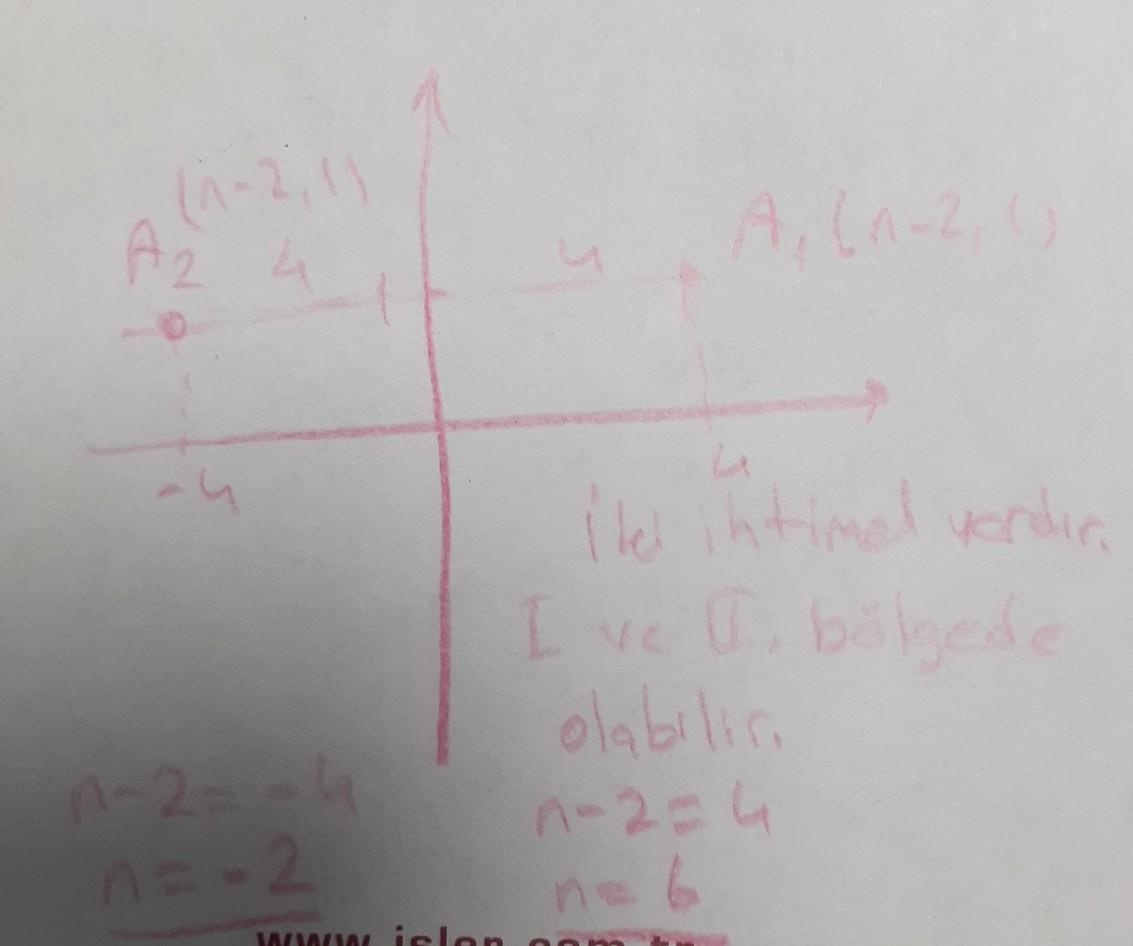 (n-2,1)
A2 4
4
A1(n-2,1)
-4
4
İki ihtimal vardır.
I ve II. bölgede
olabilir.
n-2=-4
n=-2
n-2=4
n=6
www.islen.com.tr